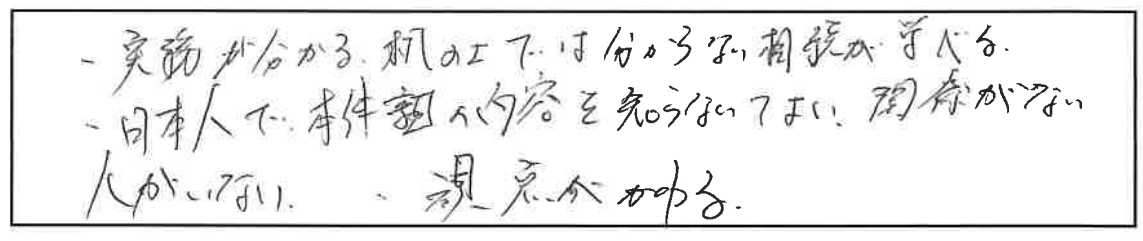 ・実務が分かる。机の上では分からない相続が学べる。
・日本人で、本件塾の内容を知らないでよい、関係がない
人がいない。 ・視点がかわる。